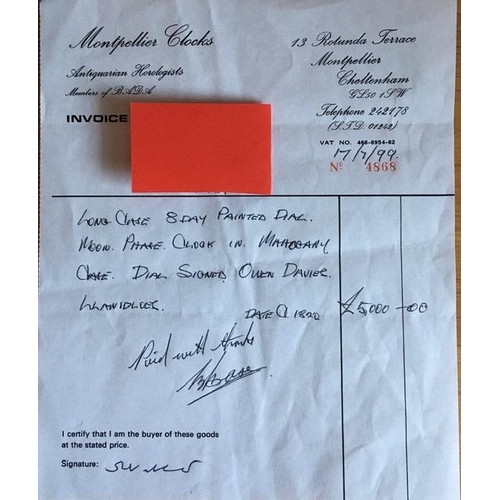 Montpellier Clocks
Antiquarian Horologists
Members of B.A.D.A
INVOICE
13 Rotunda Terrace
Montpellier
Cheltenham
GL50 1SW
Telephone 242178
(S.T.D. 01242)
VAT NO. 466-8954-82
17/7/99.
No 4868
LONG CASE 8 DAY PAINTED DIAL.
MOON. PHASE. CLOCK IN. MAHOGANY
CASE. DIAL SIGNED OWEN DAVIES.
LLANIDLOES. DATE C 1820 £5,000-00
Paid with thanks
I certify that I am the buyer of these goods
at the stated price.
Signature: